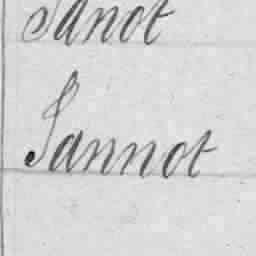 Janot
Jannot